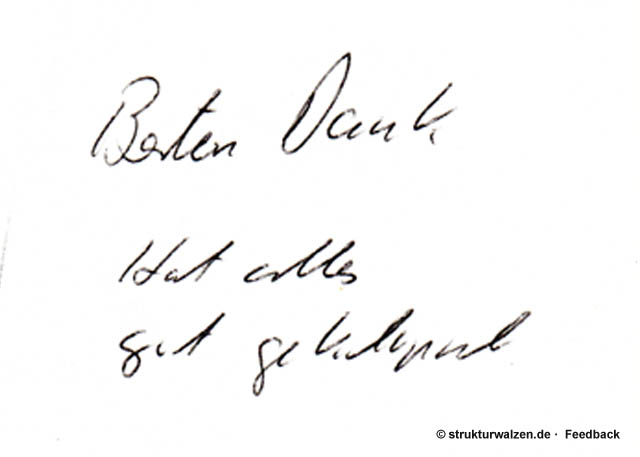 Besten Dank
Hat alles
gut geklappt
© strukturwalzen.de · Feedback